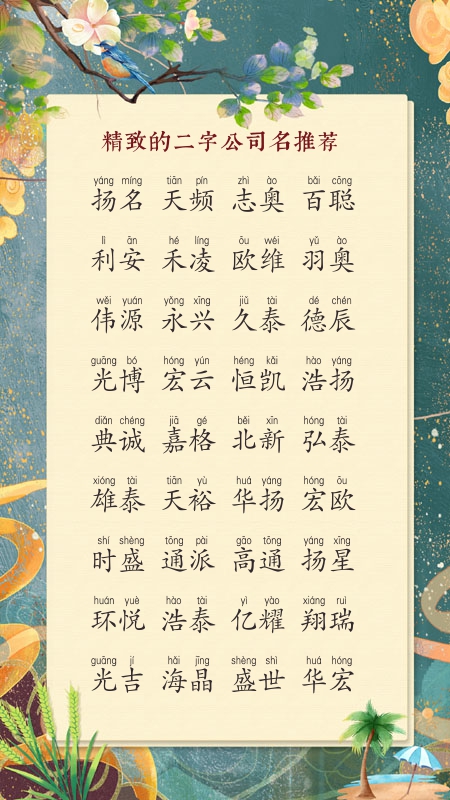 精致的二字公司名推荐
yáng míng tiān pín zhì ào bǎi cōng
扬名 天频 志奥 百聪
lì ān hé líng ōu wéi yǔ ào
利安 禾凌 欧维 羽奥
wěi yuán yǒng xīng jiǔ tài dé chén
伟源 永兴 久泰 德辰
guāng bó hóng yún héng kǎi hào yáng
光博 宏云 恒凯 浩扬
diǎn chéng jiā gé běi xīn hóng tài
典诚 嘉格 北新 弘泰
xióng tài tiān yù huá yáng hóng ōu
雄泰 天裕 华扬 宏欧
shí shèng tōng pài gāo tōng yáng xīng
时盛 通派 高通 扬星
huán yuè hào tài yì yào xiáng ruì
环悦 浩泰 亿耀 翔瑞
guāng jí hǎi jīng shèng shì huá hóng
光吉 海晶 盛世 华宏